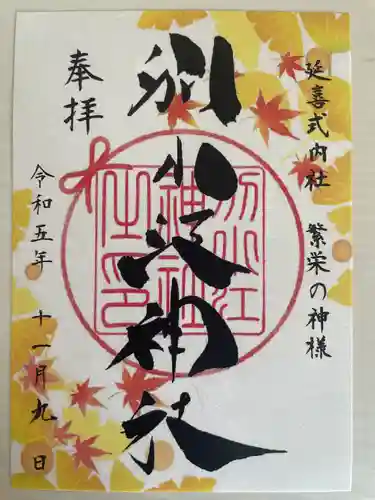 延喜式内社 繁栄の神様
奉拝
別小江神社
令和五年 十一月九日
別小江神社之印